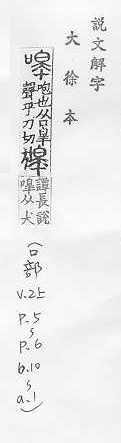 說文解字
大徐本
嘷 咆也从口皐
聲乎刀切 獆
譚長說
嘷从犬
(口部
V.2上
P.5
~
P.6
b.10
~
a.1)